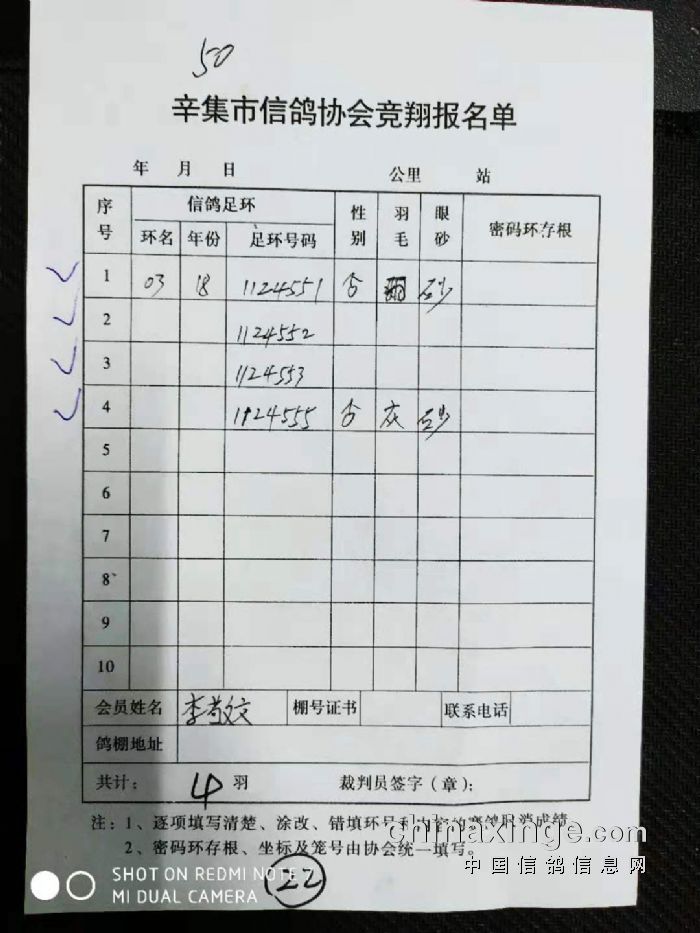 50
辛集市信鸽协会竞翔报名单
年 月 日 公里 站
序号 信鸽足环 性别 羽毛 眼砂 密码环存根
环名 年份 足环号码
1 03 18 1124551 砂
2 1124552
3 1124553
4 1124555 灰 砂
5
6
7
8
9
10
会员姓名 李 棚号证书 联系电话
鸽棚地址
共计: 4 羽 裁判员签字(章):
注:1、逐项填写清楚、涂改、错填环号和内容的赛鸽取消成绩
2、密码环存根、坐标及笼号由协会统一填写。
chinaxinge.com
中国信鸽信息网
SHOT ON REDMI NOTE 7
MI DUAL CAMERA
22